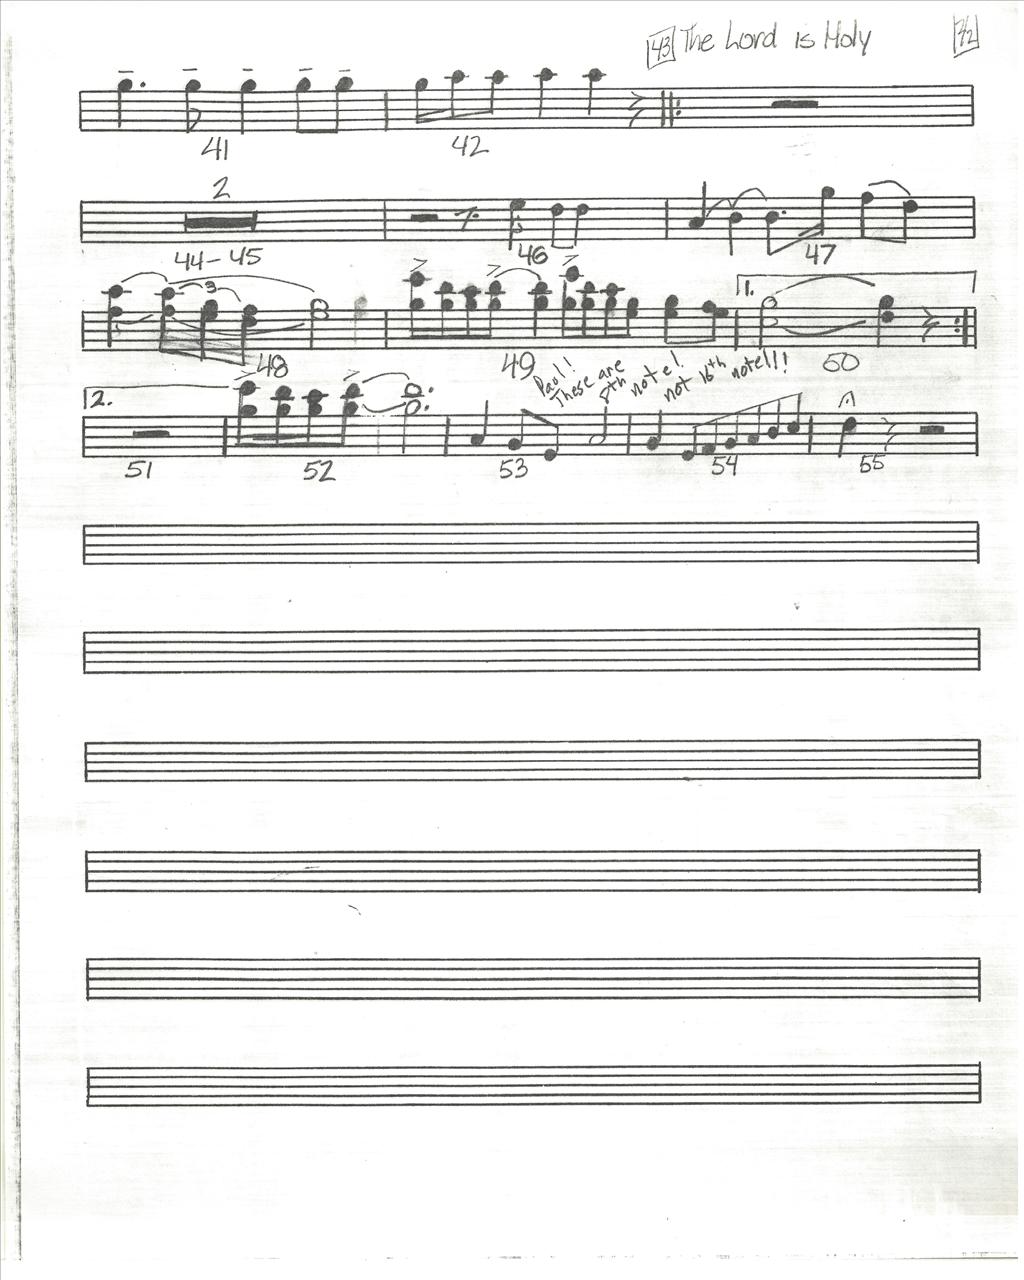 43 The Lord is Holy 2/2
41 42
2
44-45 46 47
3 1.
48 49 50
Paol!
These are
8th note!
not 16th note!!!
2.
51 52 53 54 55